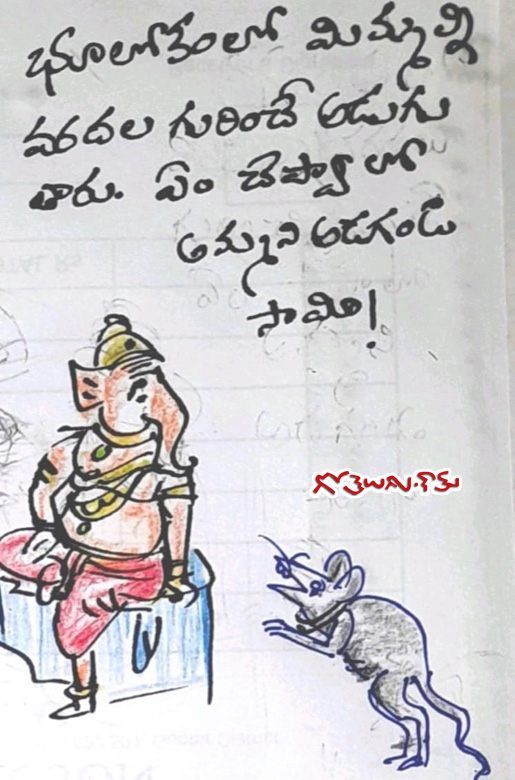 భూలోకంలో మిమ్మల్ని
వరదల గురించే అడుగు
తారు. ఏం చెప్పాలో
అమ్మని అడగండి
సామీ!
గోతెలుగు.కామ్